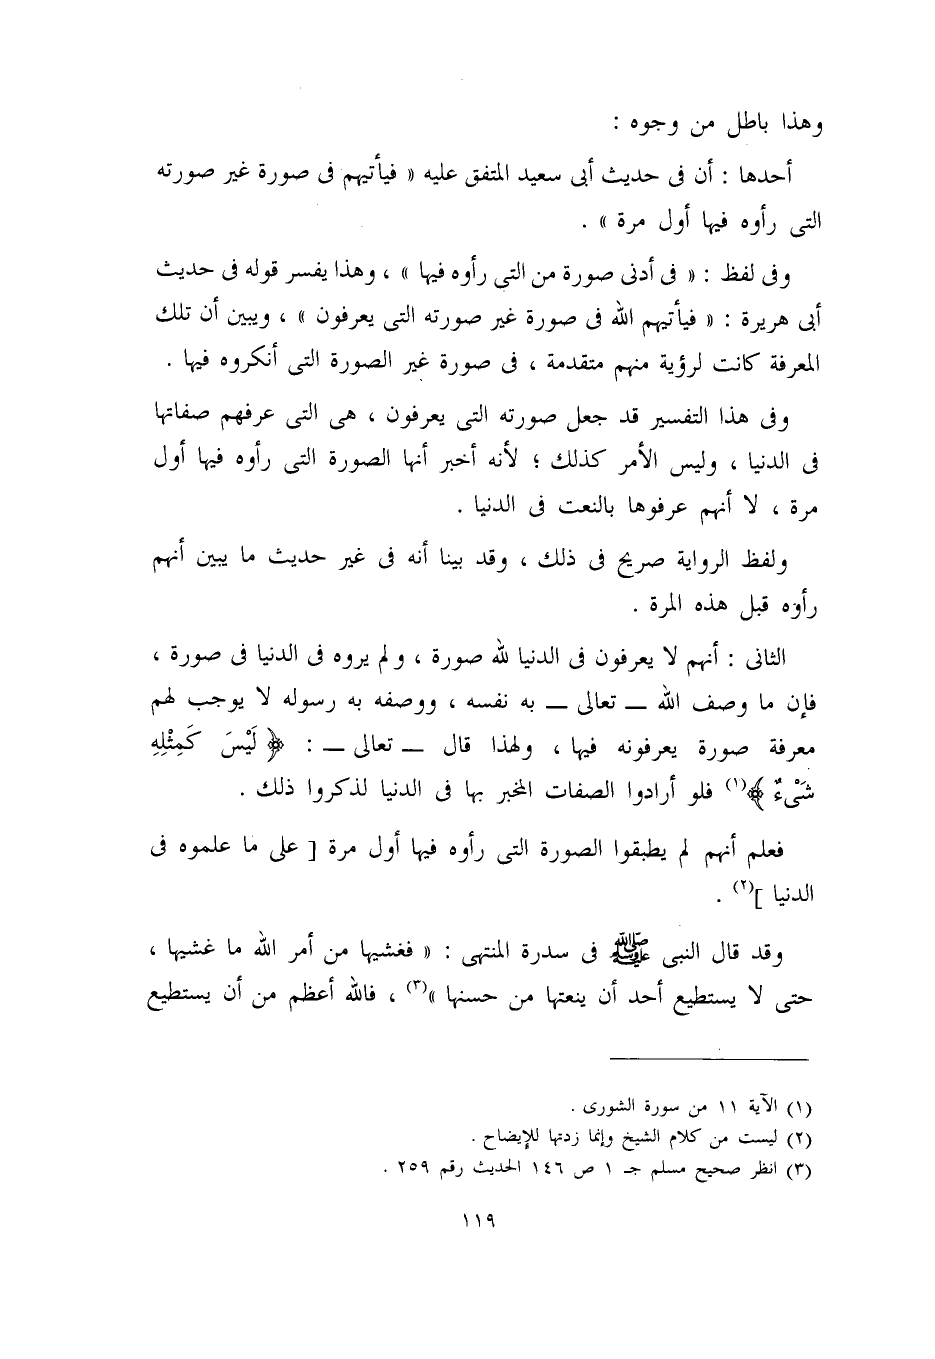 وهذا باطل من وجوه :
أحدها : أن فى حديث أبى سعيد المتفق عليه « فيأتيهم فى صورة غير صورته
التى رأوه فيها أول مرة » .
وفى لفظ : « فى أدنى صورة من التى رأوه فيها » ، وهذا يفسر قوله فى حديث
أبى هريرة : « فيأتيهم الله فى صورة غير صورته التى يعرفون » ، ويبين أن تلك
المعرفة كانت لرؤية منهم متقدمة ، فى صورة غير الصورة التى أنكروه فيها .
وفى هذا التفسير قد جعل صورته التى يعرفون ، هى التى عرفهم صفاتها
فى الدنيا ، وليس الأمر كذلك ؛ لأنه أخبر أنها الصورة التى رأوه فيها أول
مرة ، لا أنهم عرفوها بالنعت فى الدنيا .
ولفظ الرواية صريح فى ذلك ، وقد بينا أنه فى غير حديث ما يبين أنهم
رأوه قبل هذه المرة .
الثانى : أنهم لا يعرفون فى الدنيا لله صورة ، ولم يروه فى الدنيا فى صورة ،
فإن ما وصف الله — تعالى — به نفسه ، ووصفه به رسوله لا يوجب لهم
معرفة صورة يعرفونه فيها ، ولهذا قال — تعالى — : ﴿ لَيْسَ كَمِثْلِهِ
شَىْءٌ ﴾(١) فلو أرادوا الصفات المخبر بها فى الدنيا لذكروا ذلك .
فعلم أنهم لم يطبقوا الصورة التى رأوه فيها أول مرة [ على ما علموه فى
الدنيا ](٢) .
وقد قال النبى ﷺ فى سدرة المنتهى : « فغشيها من أمر الله ما غشيها ،
حتى لا يستطيع أحد أن ينعتها من حسنها »(٣) ، فالله أعظم من أن يستطيع
(١) الآية ١١ من سورة الشورى .
(٢) ليست من كلام الشيخ وإنما زدتها للإيضاح .
(٣) انظر صحيح مسلم جـ ١ ص ١٤٦ الحديث رقم ٢٥٩ .
١١٩